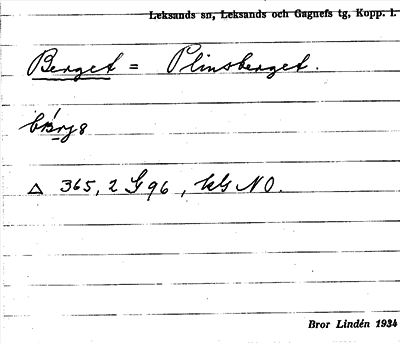 Leksands sn, Leksands och Gagnefs tg, Kopp. l.
Berget = Plinsberget.
△ 365,2 G 96, bl. NO.
Bror Lindén 1934